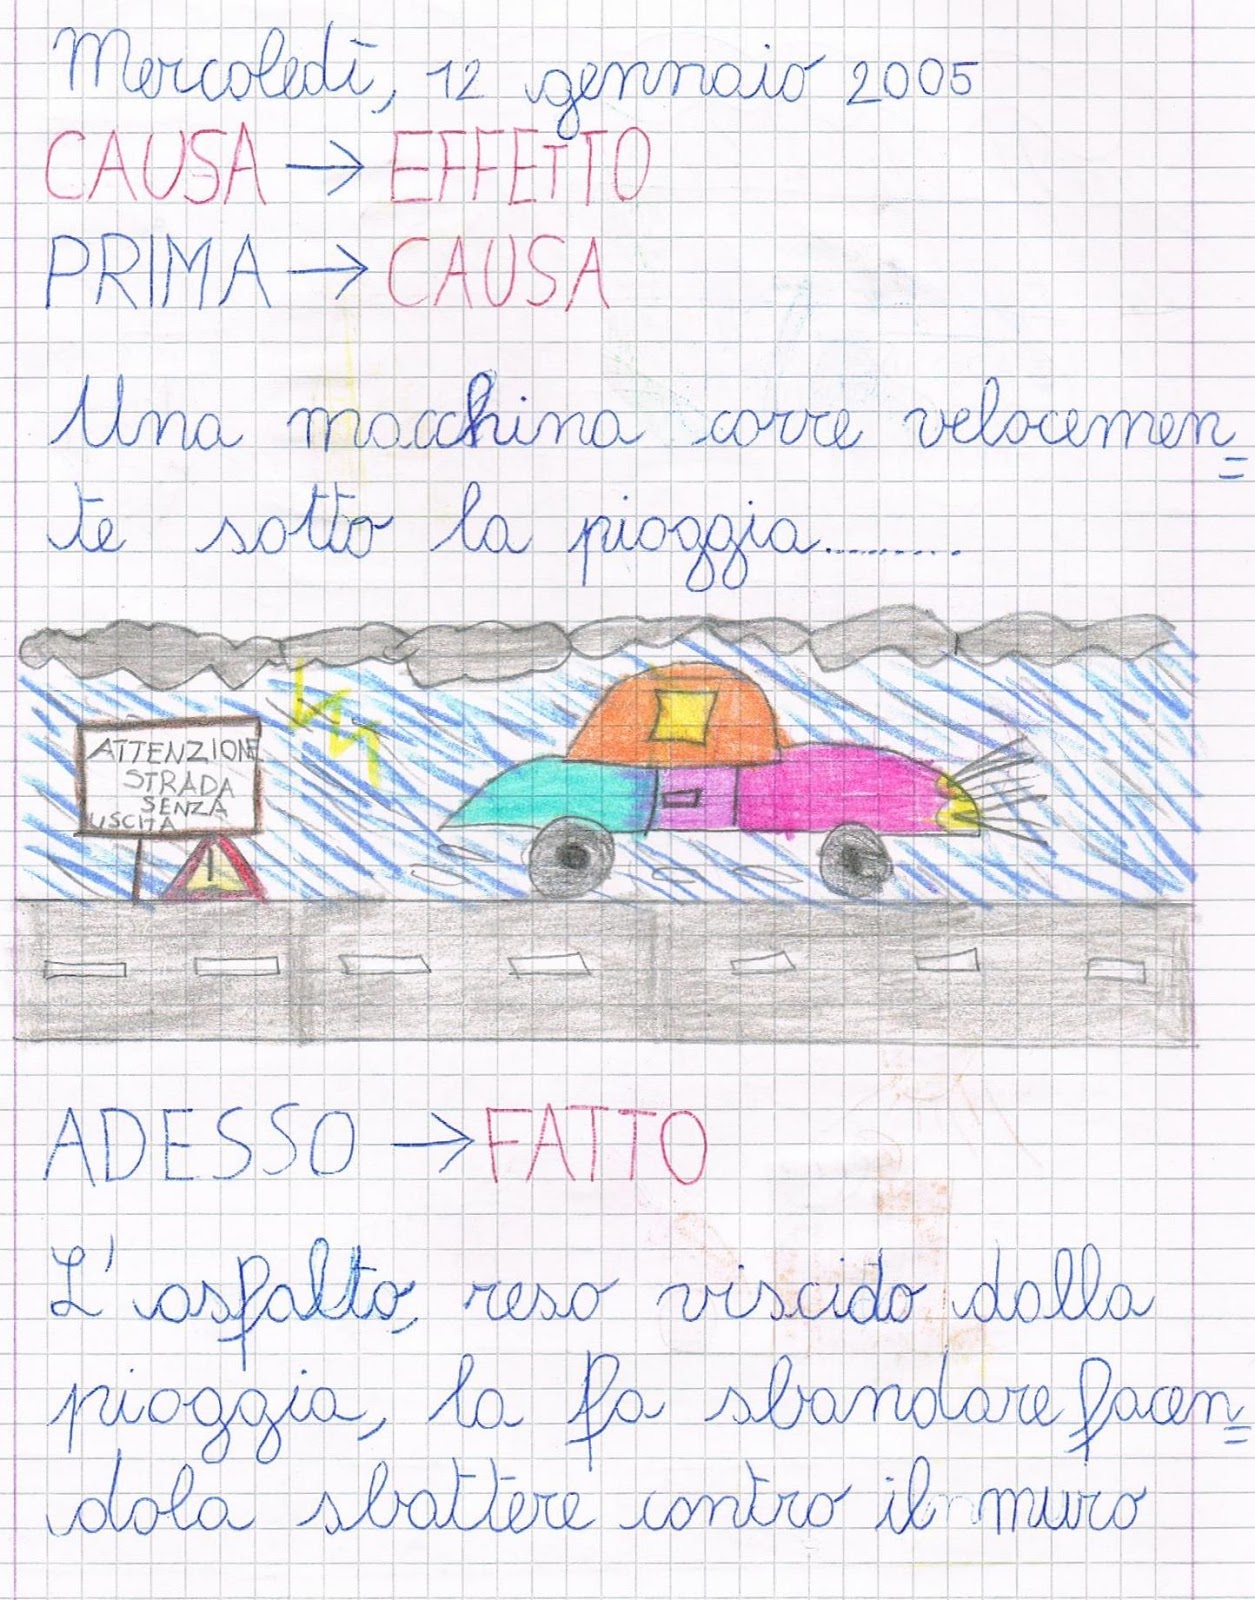 Mercoledì, 12 gennaio 2005
CAUSA → EFFETTO
PRIMA → CAUSA
Una macchina corre velocemen=
te sotto la pioggia..........
ATTENZIONE
STRADA
SENZA
USCITA
!
ADESSO → FATTO
L'asfalto, reso viscido dalla
pioggia, la fa sbandare facen=
dola sbattere contro il muro